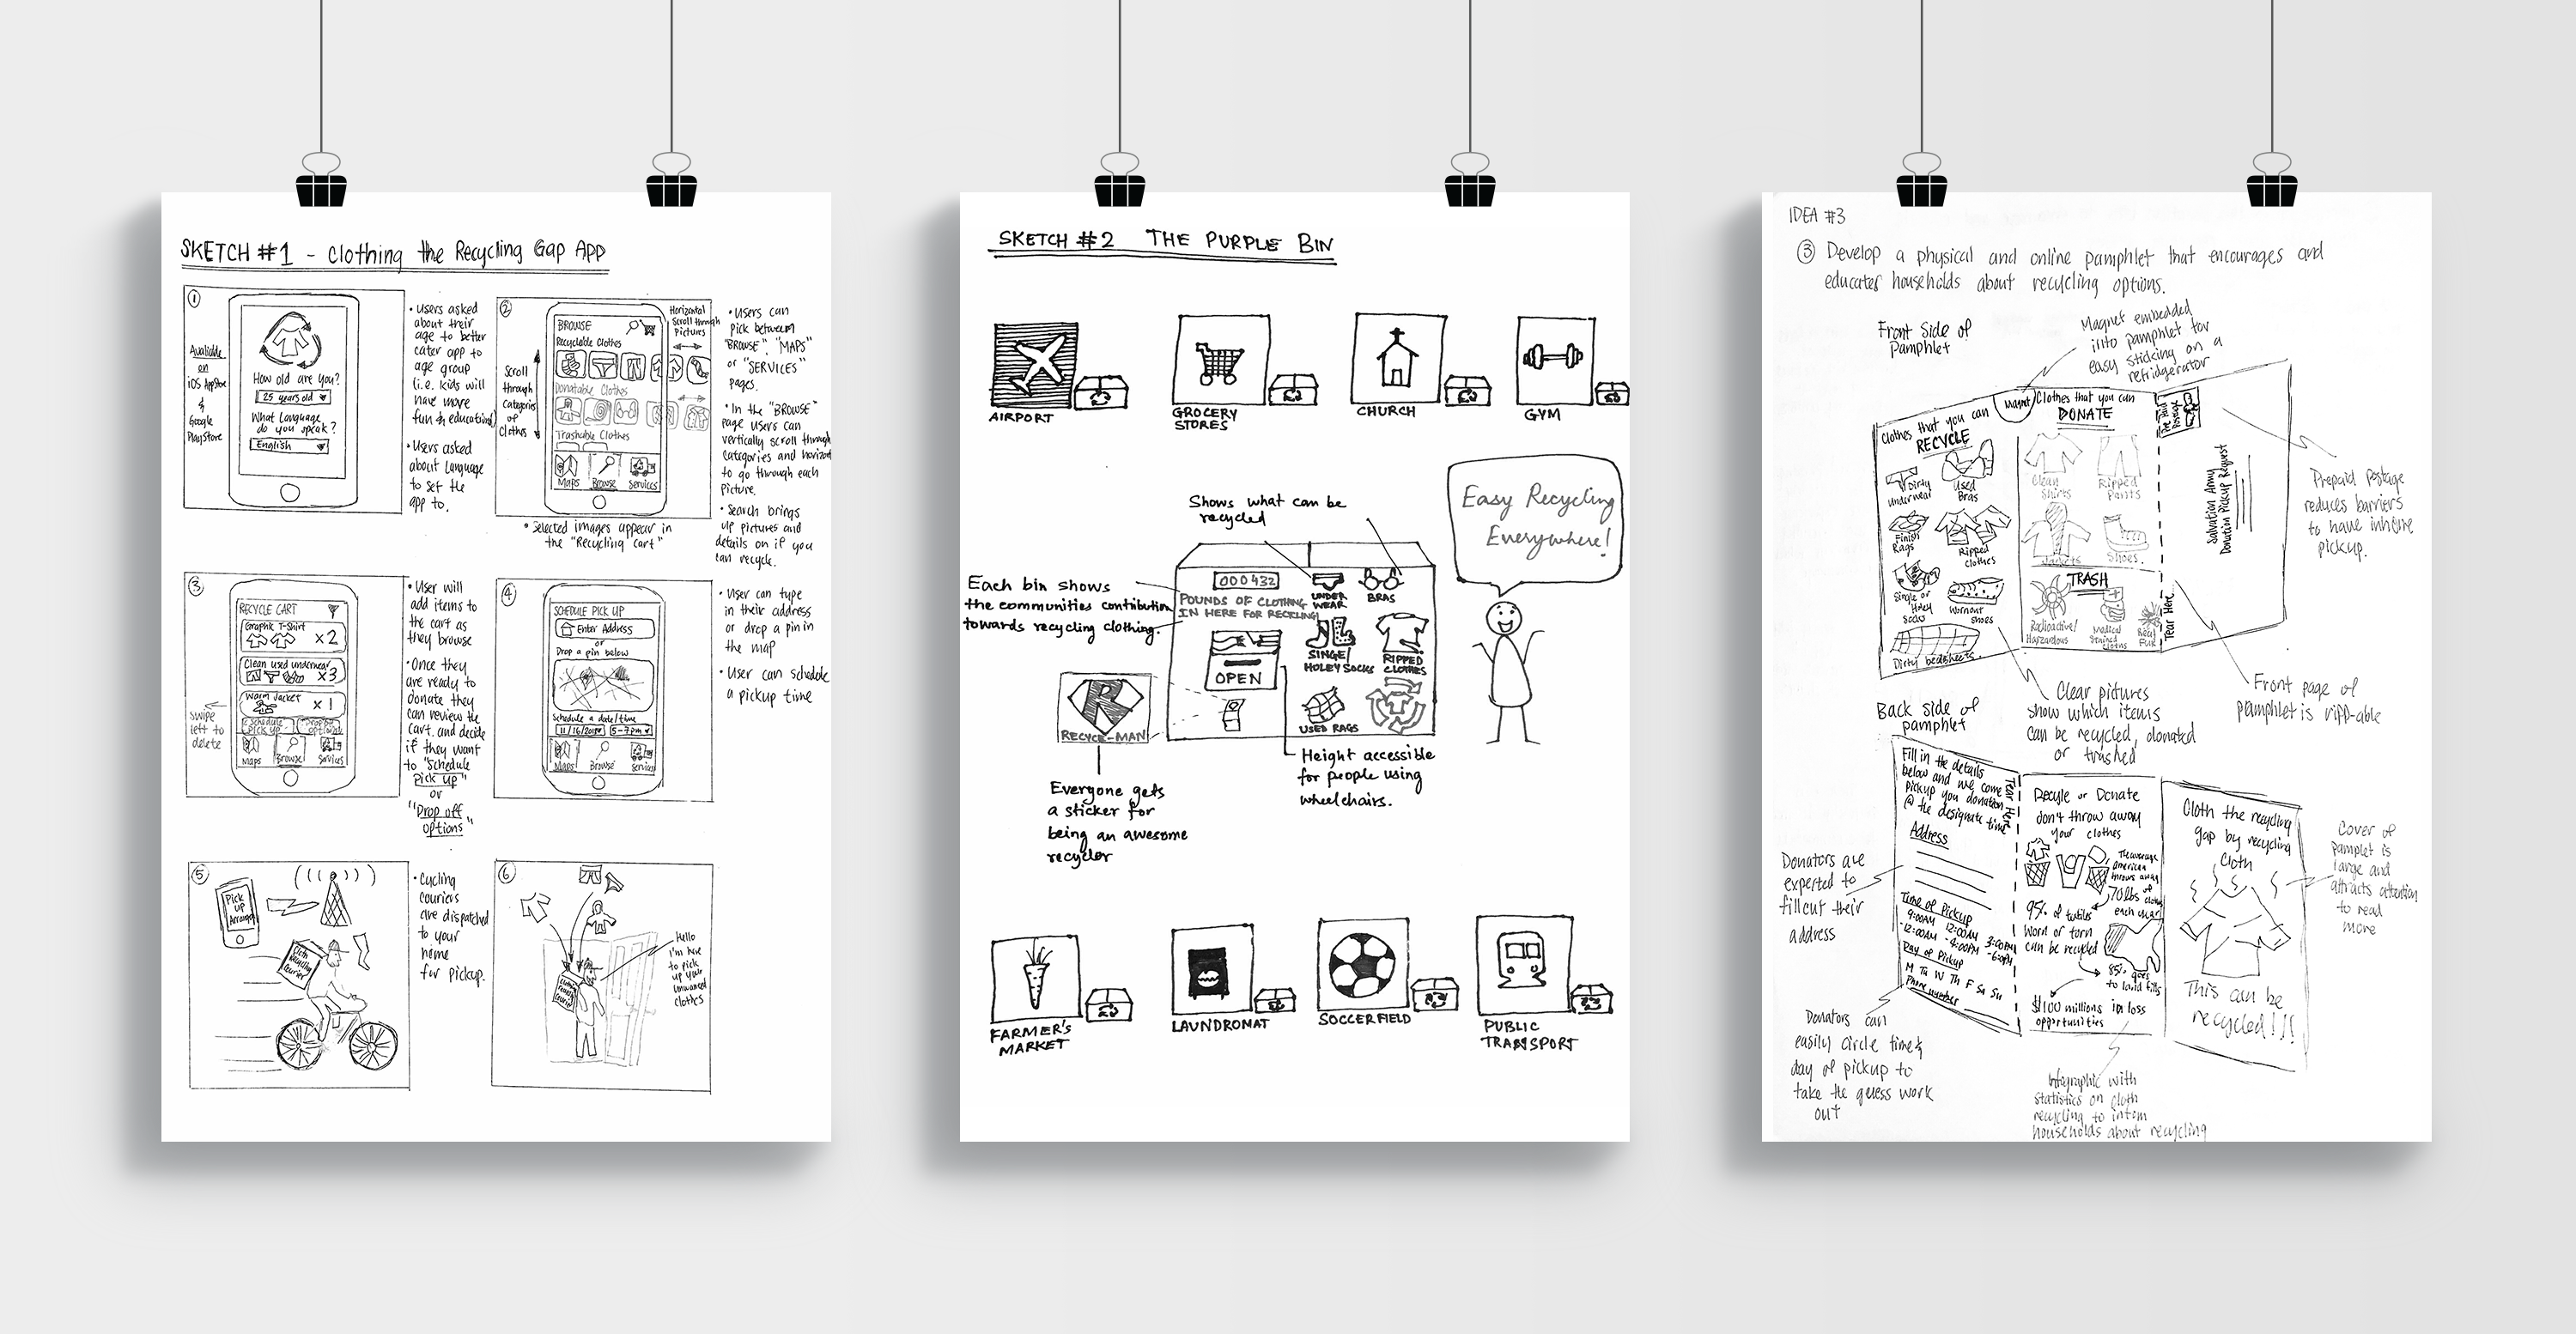 SKETCH #1 - Clothing the Recycling Gap App
1
Available
on
iOS AppStore
&
Google
PlayStore
How old are you?
25 years old
What Language
do you speak?
English
• Users asked
about their
age to better
cater app to
age group
(i.e. kids will
have more
fun & education)
• Users asked
about language
to set the
app to.
2
Scroll
through
categories
of
clothes
BROWSE
Recyclable Clothes
Donatable Clothes
Trashable Clothes
Maps Browse Services
Horizontal
Scroll through
Pictures
• Selected images appear in
the "Recycling cart"
• Users can
pick between
"BROWSE", "MAPS"
or "SERVICES"
pages.
• In the "BROWSE"
page users can
vertically scroll through
categories and horizont
to go through each
picture.
• Search brings
up pictures and
details on if you
can recycle.
3
swipe
left to
delete
RECYCLE CART
Graphic T-Shirt
x2
Clean used underwear
x3
Warm Jacket
x1
Schedule
pick up
Drop off
options
Maps Browse Services
• User will
add items to
the cart as
they browse
• Once they
are ready to
donate they
can review the
cart, and decide
if they want
to "Schedule
Pick up"
or
"Drop off
options"
4
SCHEDULE PICK UP
Enter Address
or
Drop a pin below
Schedule a date/time
5-7pm
Maps Browse Services
• User can type
in their address
or drop a pin in
the map
• User can schedule
a pickup time
5
Pick
up
Arranged
Cloth
Recycling
Courier
• Cycling
couriers
are dispatched
to your
home
for pickup.
6
Hello
I'm here
to pick
up your
unwanted
clothes
SKETCH #2 THE PURPLE BIN
AIRPORT
GROCERY
STORES
CHURCH
GYM
Shows what can be
recycled
Easy Recycling
Everywhere!
Each bin shows
the communities contribution
towards recycling clothing.
000432
POUNDS OF CLOTHING
IN HERE FOR RECKLING
OPEN
UNDER
WEAR
BRAS
SINGE/
HOLEY SOCKS
RIPPED
CLOTHES
USED RAGS
R
RECYCE-MAN
Everyone gets
a sticker for
being an awesome
recycler
Height accessible
for people using
wheelchairs.
FARMER'S
MARKET
LAUNDROMAT
SOCCERFIELD
PUBLIC
TRANSPORT
IDEA #3
3 Develop a physical and online pamphlet that encourages and
educates households about recycling options.
Front Side of
Pamphlet
Magnet embedded
into pamphlet for
easy sticking on a
refridgerator
Clothes that you can
RECYCLE
Dirty
Underwear
Used
Bras
Rags
Ripped
clothes
Single or
Holey
Socks
Wornout
shoes
Dirty bedsheets
Magnet
Clothes that you can
DONATE
Clean
Shirts
Ripped
Pants
Jackets
Shoes
TRASH
Radioactive/
Harzardous
Medical
Stained
Clothes
Real
Fur
Tear Here
Salvation Army
Donation Pickup Request
Prepaid Postage
reduces barriers
to have inhome
pickup.
Front page of
pamphlet is ripp-able
Clear pictures
show which items
can be recycled, donated
or trashed
Back side of
pamphlet
Fill in the details
below and we come
pickup you donation
@ the designate time
Address
Time of Pickup
9:00AM 12:00AM 3:00PM
-12:00AM -4:00PM -6:00PM
Day of Pickup
M Tu W Th F Sa Su
Phone number
Tear Here
Recyle or Donate
don't throw away
your clothes
The average
American
throws away
70lbs of
clothes
each year
95% of textiles
worn or torn
can be recycled
85% goes
to land fills
$100 millions in loss
opportunities
Cloth the recycling
gap by recycling
cloth
This can be
recycled!!!
Cover of
pamplet is
large and
attracts attention
to read
more
Donators are
expected to
fillout their
address
Donators can
easily circle time &
day of pickup to
take the guess work
out
Infographic with
statistics on cloth
recycling to inform
households about recycling